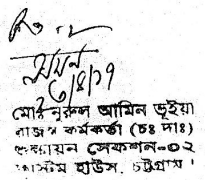 মোঃ নুরুল আমিন ভূইয়া
রাজস্ব কর্মকর্তা (চঃ দাঃ)
শুল্কায়ন সেকশন-০২
কাস্টম হাউস, চট্টগ্রাম।